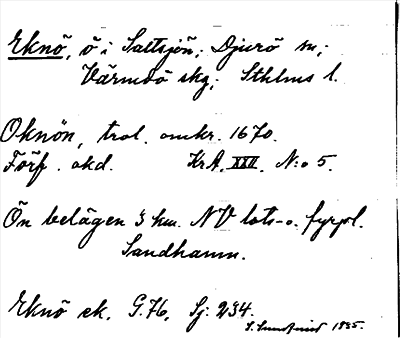 Eknö, ö i Saltsjön; Djurö sn;
Värmdö skg; Sthlms l.
Oknön, trol. omkr. 1670.
Förf. okd. KrA. XXII. N:o 5.
Ön belägen 3 km. NV lots- o. fyrpl.
Sandhamn.
Eknö ek. G. 76, Sj. 234.
1935.